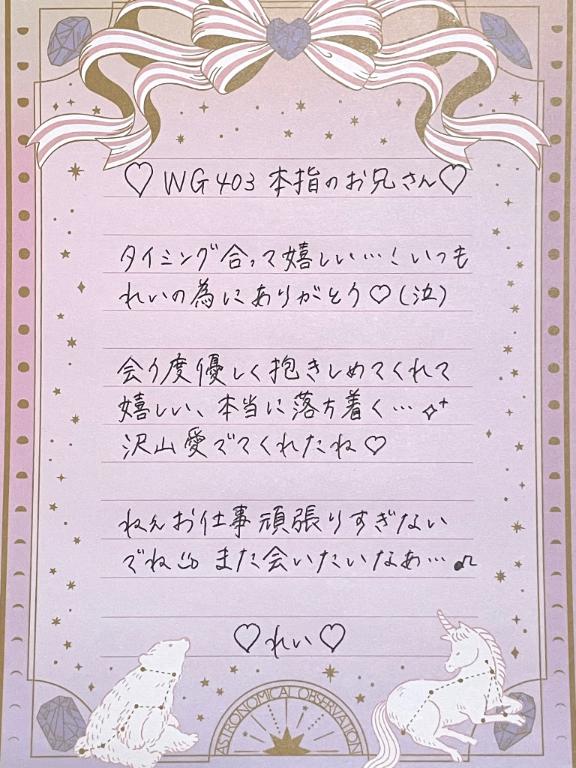 ♡ WG403 本指のお兄さん♡
タイミング合って嬉しい…！いつも
れいの為にありがとう♡(泣)
会う度優しく抱きしめてくれて
嬉しい、本当に落ち着く…✧⁺
沢山愛でてくれたね♡
ねえお仕事頑張りすぎない
でね♨ また会いたいなぁ…♫
♡れい♡
ASTRONOMICAL OBSERVATION